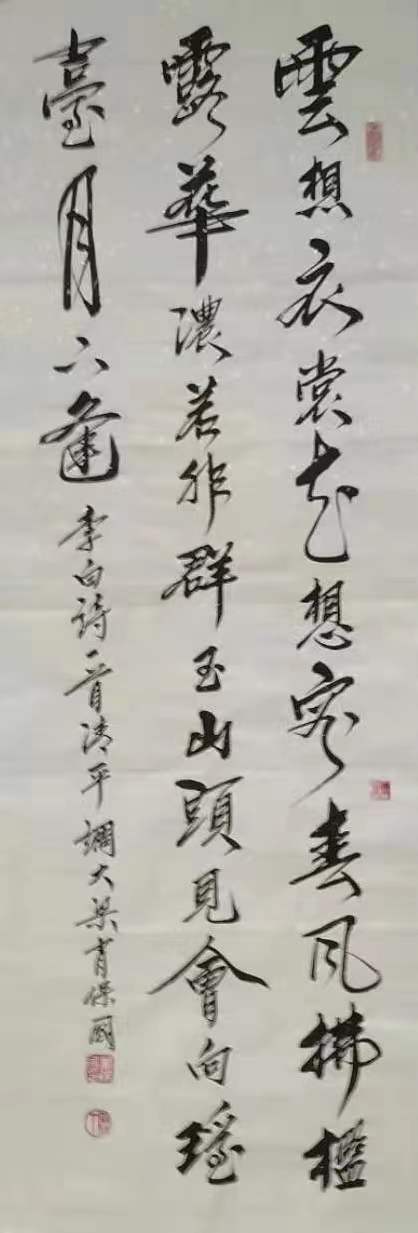 雲想衣裳花想容春风拂檻
露華濃若非群玉山頭見會向瑤
臺月下逢
李白詩一首清平調大梁肖保國